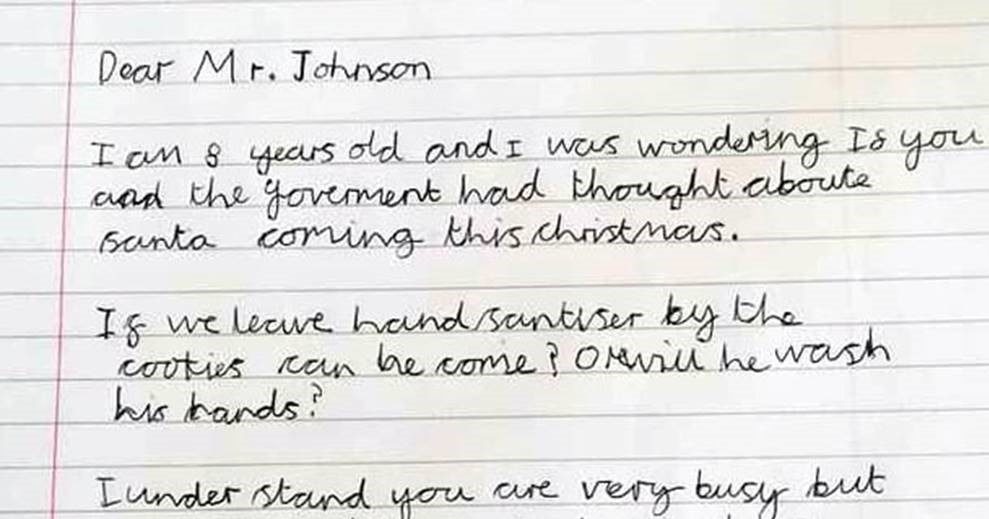 Dear Mr. Johnson
I am 8 years old and I was wondering If you
and the goverment had thought aboute
santa coming this christmas.
If we leave hand santiser by the
cookies can he come? Or will he wash
his hands?
I under stand you are very busy but